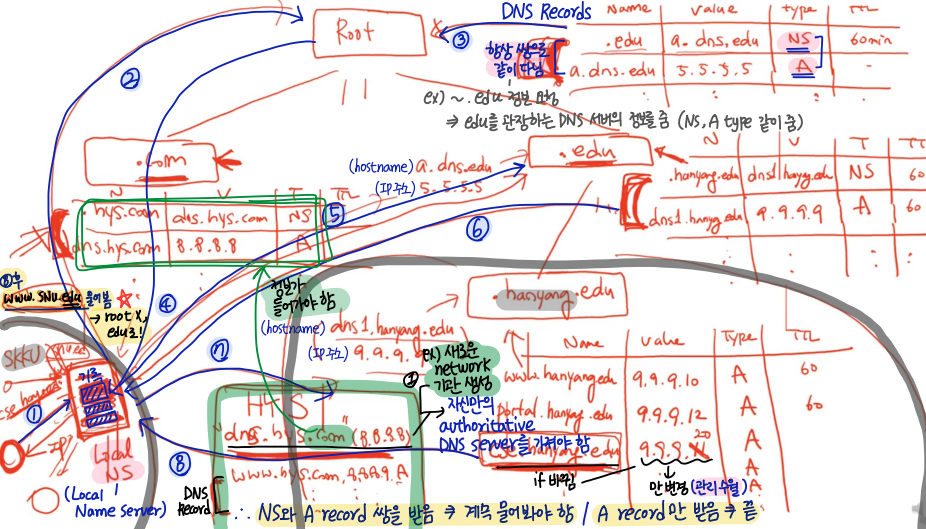 DNS Records
Name Value type TTL
.edu a.dns.edu NS 60min
a.dns.edu 5.5.5.5 A -
Root
③
항상 쌍으로
같이 다님
ex) ~.edu 정보 요청
⇒ edu를 관장하는 DNS 서버의 정보를 줌 (NS, A type 같이 줌)
②
.com
(hostname) a.dns.edu
(IP주소) 5.5.5.5
.edu
N V T TTL
.hys.com dns.hys.com NS
dns.hys.com 8.8.8.8 A
N V T TTL
.hanyang.edu dns1.hanyang.edu NS 60
dns1.hanyang.edu 9.9.9.9 A 60
⑤
⑥
④
www.SNU.edu 물어봄
→ root x,
edu로!
정보가
들어가야 함
.hanyang.edu
(hostname) dns1.hanyang.edu
(IP주소) 9.9.9.9
Name Value Type TTL
www.hanyang.edu 9.9.9.10 A 60
portal.hanyang.edu 9.9.9.12 A 60
9.9.9. 20 A
A
A
if 바뀜
만 변경 (관리 수월)
ex) 새로운
network
기관 생성
자신만의
authoritative
DNS server를 가져야 함
SKKU
기록
①
IP?
Local
NS
(Local
Name Server)
⑦
HYS
dns.hys.com (8.8.8.8)
www.hys.com, 8.8.8.9 A
DNS
Record
⑧
∴ NS와 A record 쌍을 받음 ⇒ 계속 물어봐야 함 / A record만 받음 ⇒ 끝